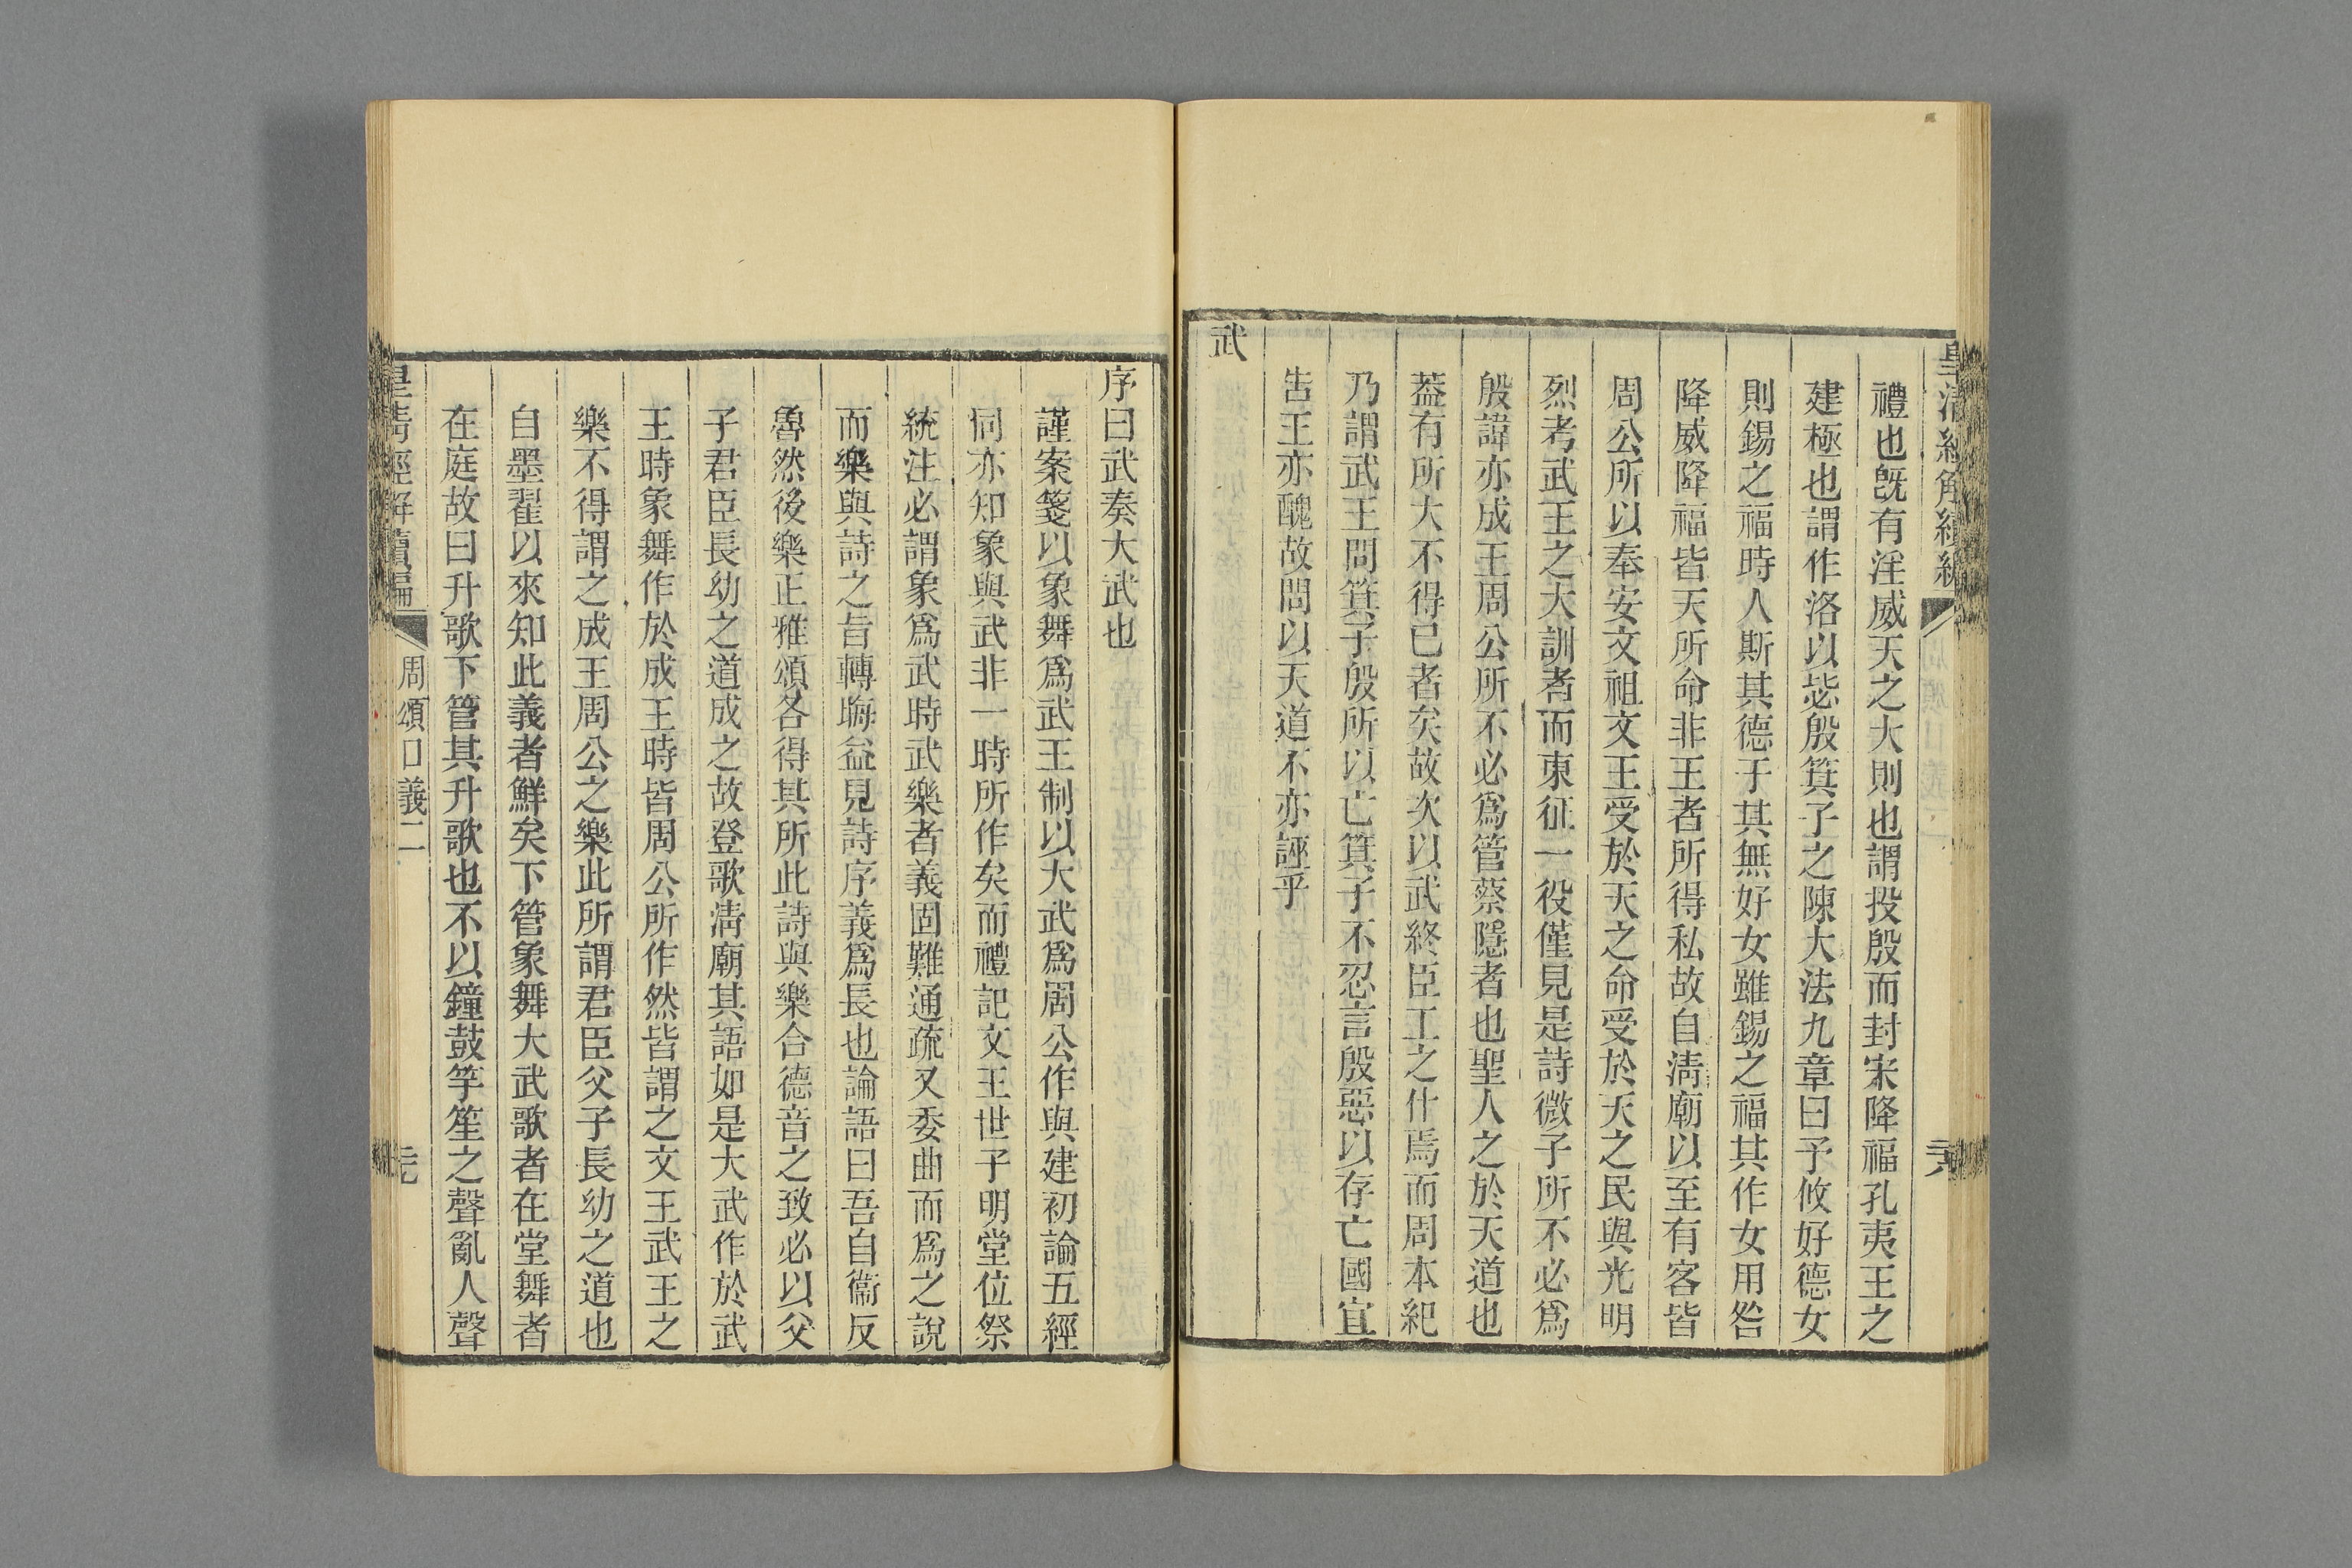 禮也旣有淫威天之大則也謂投殷而封宋降福孔夷王之
建極也謂作洛以毖殷箕子之陳大法九章曰予攸好德女
則錫之福時人斯其德于其無好女雖錫之福其作女用咎
降威降福皆天所命非王者所得私故自淸廟以至有客皆
周公所以奉安文祖文王受於天之命受於天之民與光明
烈考武王之大訓者而東征一役僅見是詩微子所不必爲
殷諱亦成王周公所不必爲管蔡隱者也聖人之於天道也
葢有所大不得已者矣故次以武終臣工之什焉而周本紀
乃謂武王問箕子殷所以亡箕子不忍言殷惡以存亡國宜
告王亦醜故問以天道不亦誣乎
武
序曰武奏大武也
謹案箋以象舞爲武王制以大武爲周公作與建初論五經
同亦知象與武非一時所作矣而禮記文王世子明堂位祭
統注必謂象爲武時武樂者義固難通疏又委曲而爲之說
而樂與詩之旨轉晦益見詩序義爲長也論語曰吾自衞反
魯然後樂正雅頌各得其所此詩與樂合德音之致必以父
子君臣長幼之道成之故登歌淸廟其語如是大武作於武
王時象舞作於成王時皆周公所作然皆謂之文王武王之
樂不得謂之成王周公之樂此所謂君臣父子長幼之道也
自墨翟以來知此義者鮮矣下管象舞大武歌者在堂舞者
在庭故曰升歌下管其升歌也不以鐘鼓竽笙之聲亂人聲
皇淸經解續編 周頌口義二